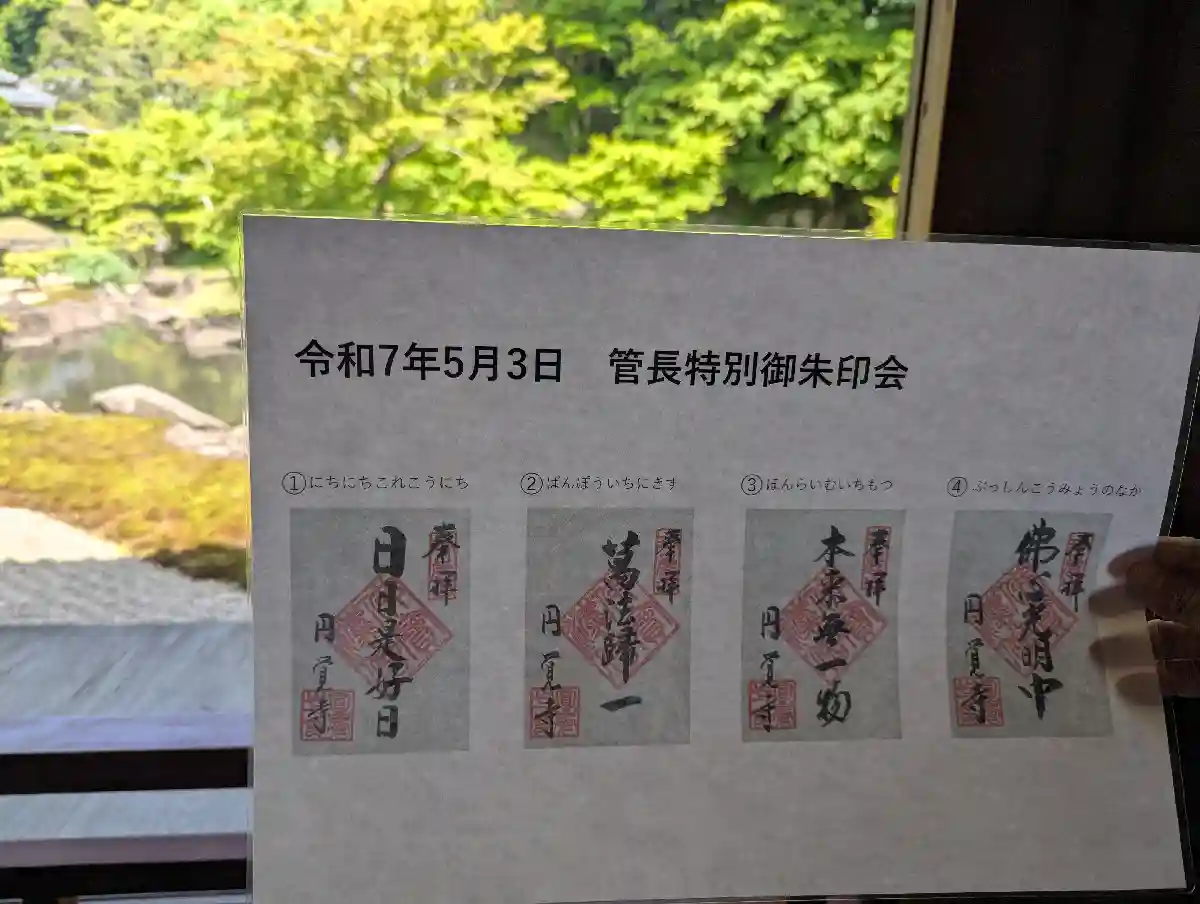 令和7年5月3日　管長特別御朱印会
①にちにちこれこうにち
②ばんぽういちにきす
③ほんらいむいちもつ
④ぶっしんこうみょうのなか
奉拝
日日是好日
円覚寺
奉拝
萬法歸一
円覚寺
奉拝
本来無一物
円覚寺
奉拝
佛心光明中
円覚寺